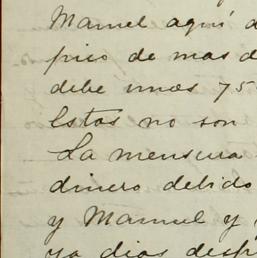 Manuel aquí
pico de mas d
debe unos 75
Estos no son
La mensura
dinero debido
y Manuel y
ya dias desp